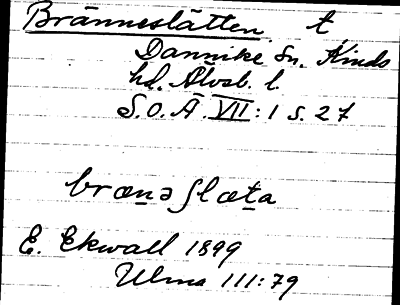 Bränneslätten t
Dannike sn. Kinds
hd. Älvsb. l.
S.O.Ä VII:1 s. 27
brænəʃlæta
E. Ekwall 1899
Ulma 111:79